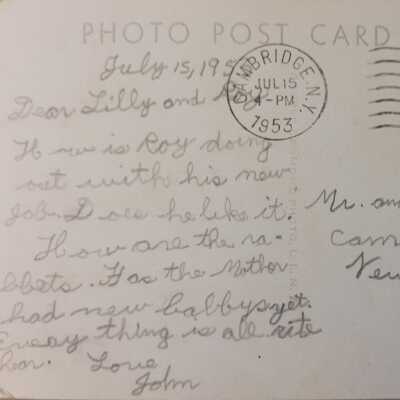 PHOTO POST CARD
July 15, 195
Dear Lilly and Roy
CAMBRIDGE, N.Y.
JUL 15
4-PM
1953
How is Roy doing
out with his new
Job. Does he like it.
How are the ra-
bbets. Has the Mother
had new babbys yet.
Everay thing is all rite
hear. Love
John
Mr. an
Cam
New